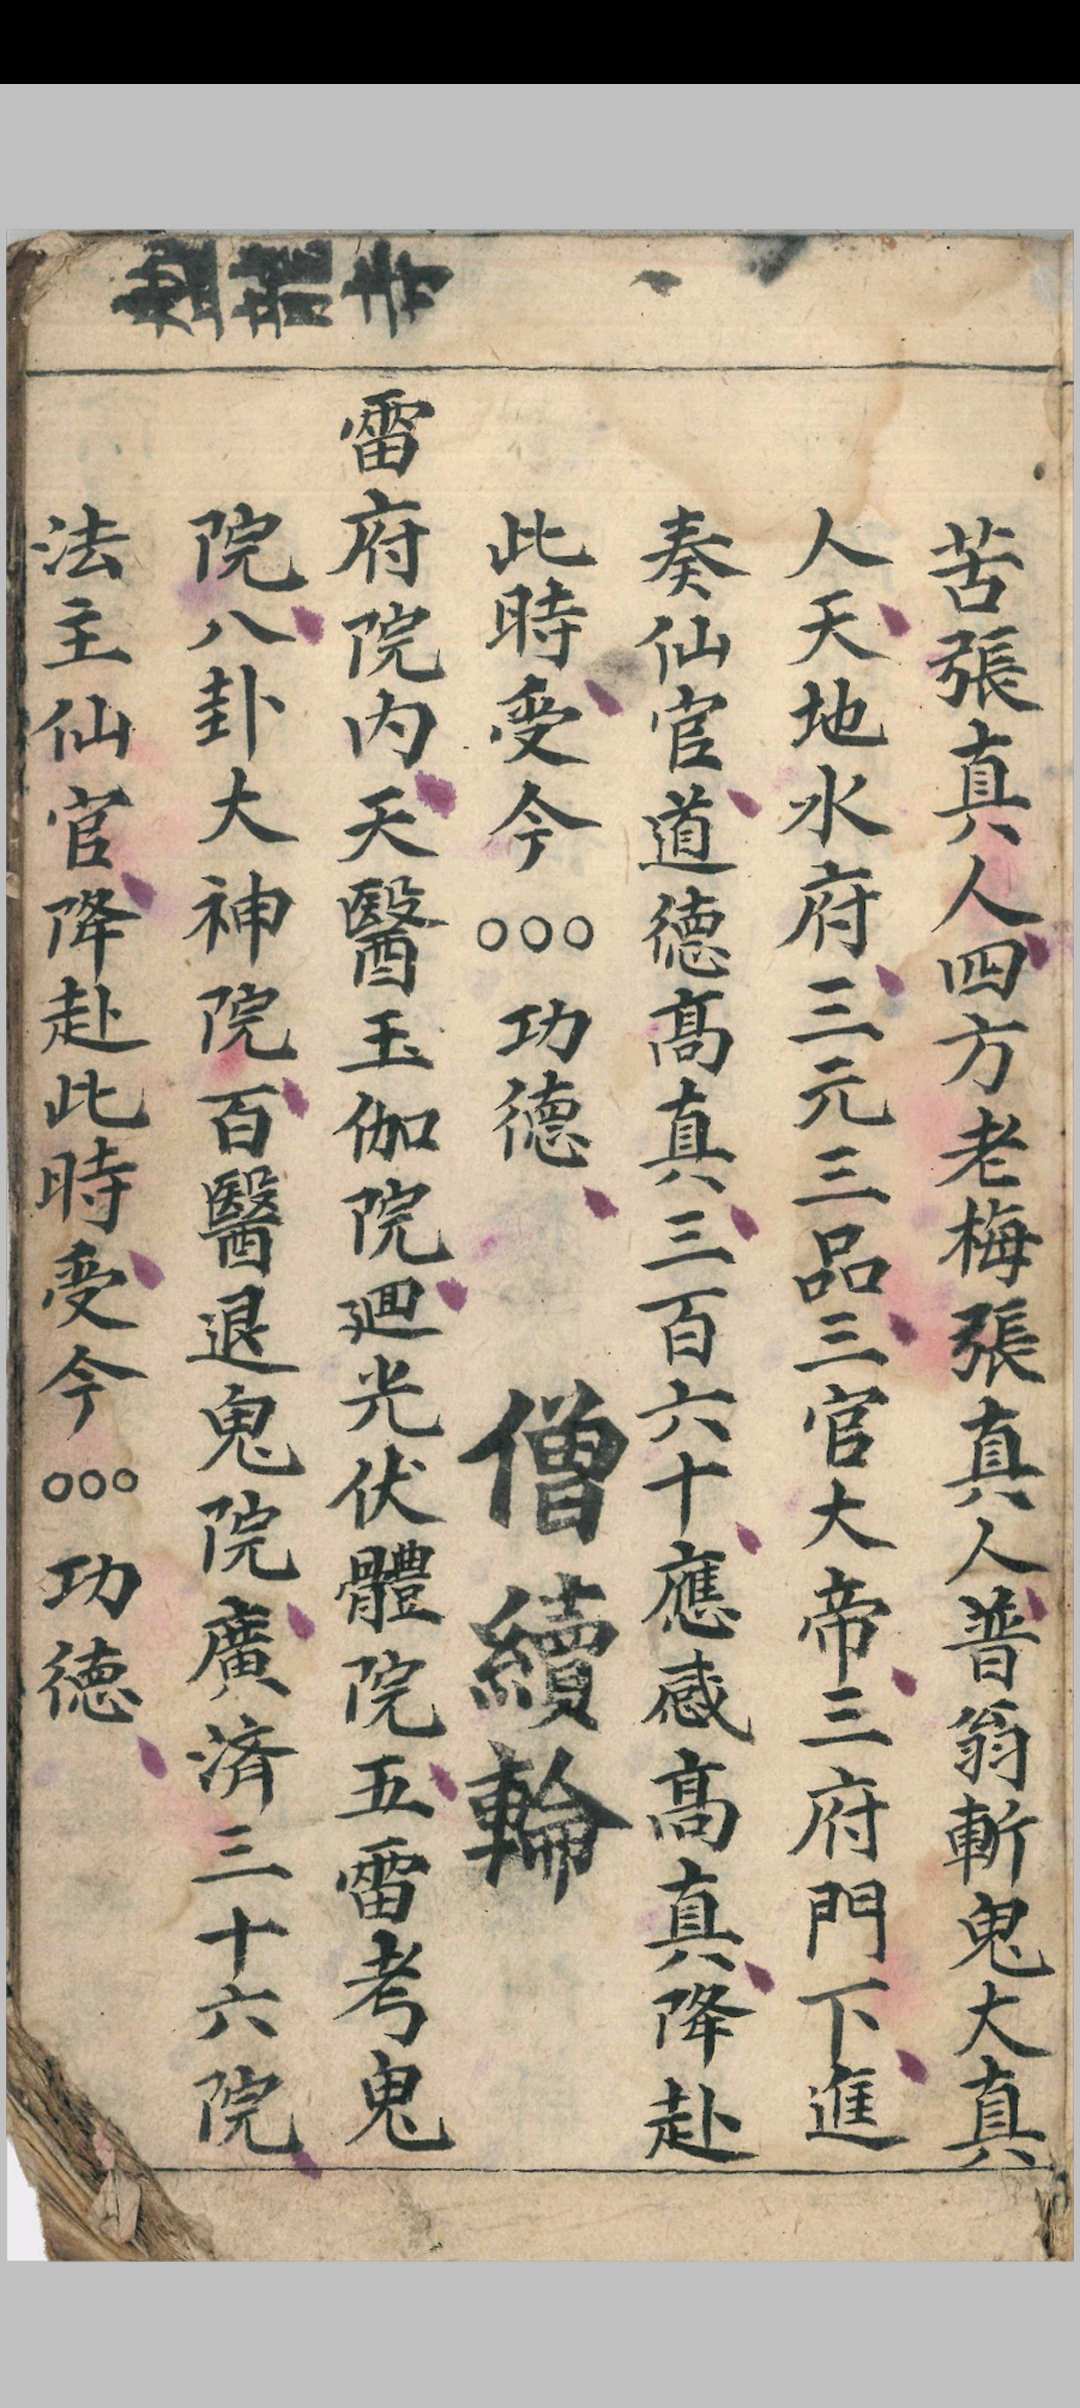 苦張真人四方老梅張真人普翁斬鬼大真
人天地水府三元三品三官大帝三府門下進
奏仙官道德高真三百六十應感高真降赴
此時受今○○○功德 僧續輪
雷府院内天醫玉伽院廻光伏體院五雷考鬼
院八卦大神院百醫退鬼院廣济三十六院
法主仙官降赴此時受今○○○功德